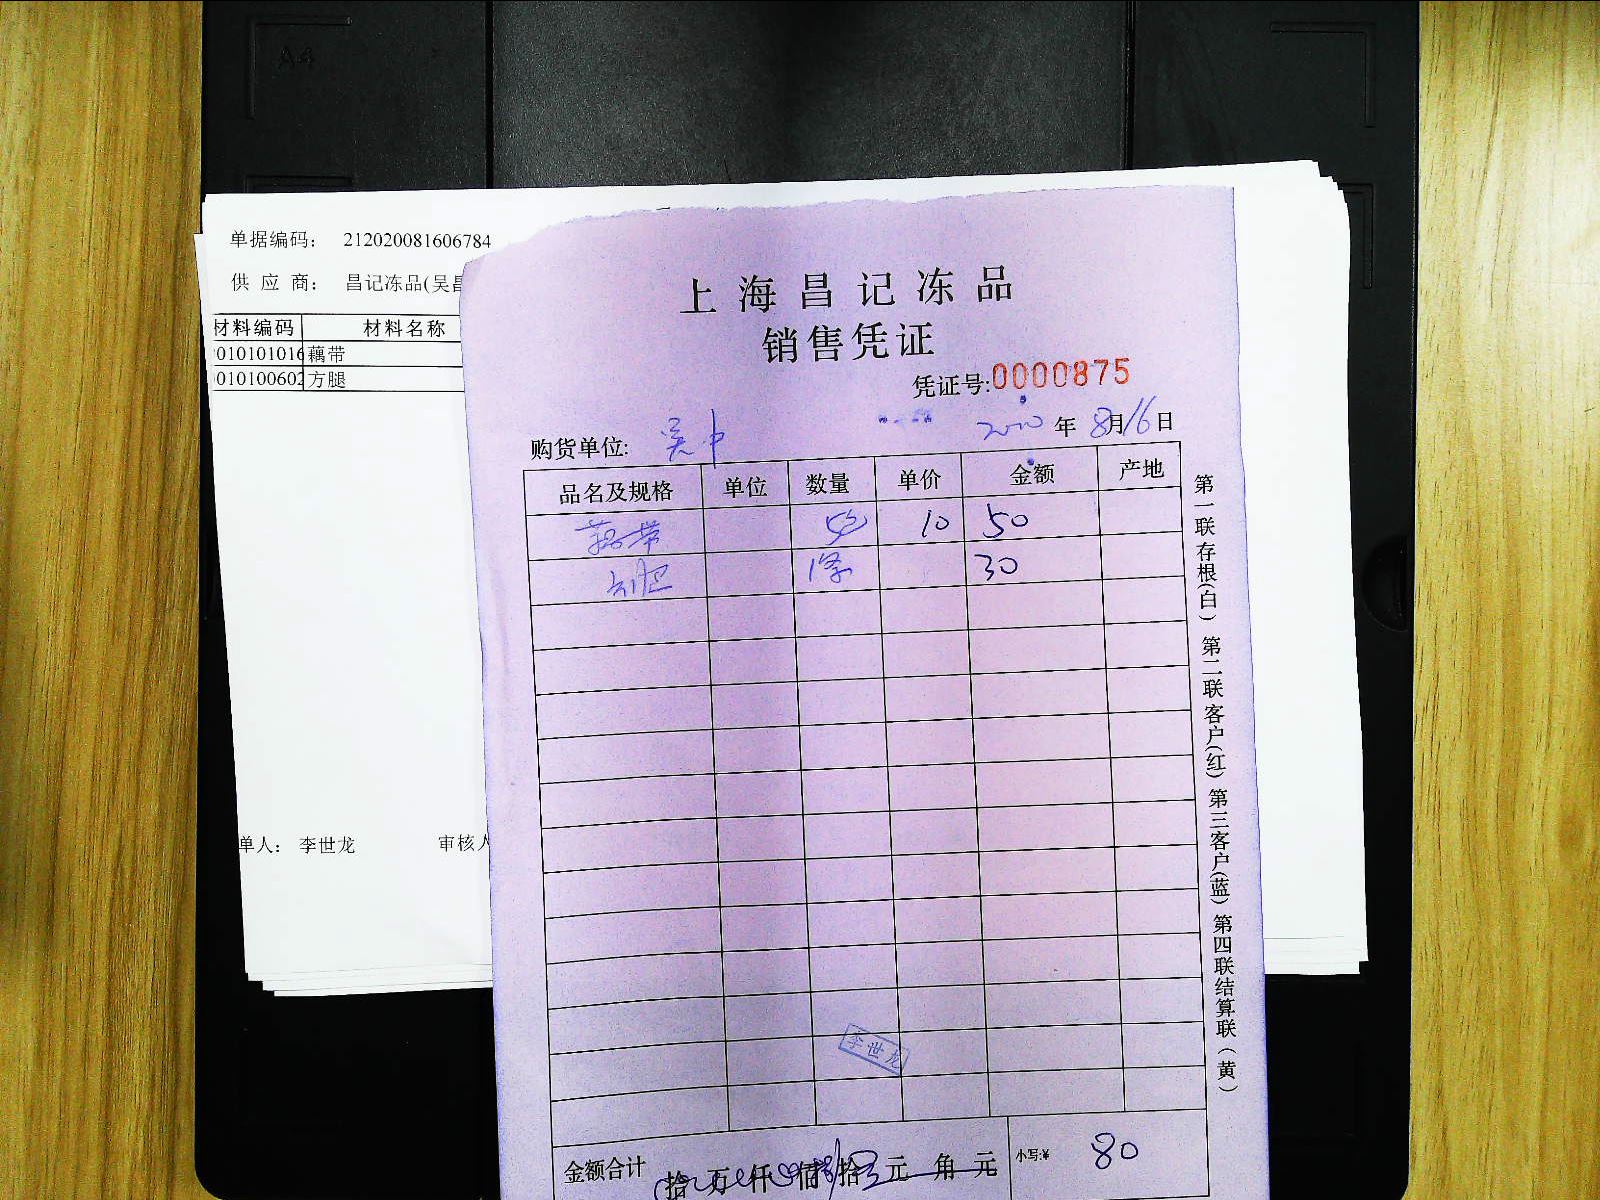 A4
单据编码： 212020081606784
供 应 商： 昌记冻品(吴昌
材料编码 材料名称
010101016 藕带
010100602 方腿
单人： 李世龙 审核人
上海昌记冻品
销售凭证
凭证号:0000875
2020 年 8月16日
购货单位: 吴中
品名及规格 单位 数量 单价 金额 产地
藕带 5包 10 50
方腿 1条 30
李世龙
金额合计 拾 万 仟 佰 拾 元 角 元 小写:¥ 80
第一联存根(白) 第二联客户(红) 第三客户(蓝) 第四联结算联(黄)